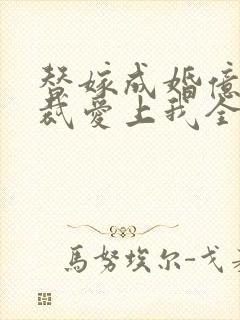 替嫁成婚億
裁愛上我全
馬努埃尔-戈